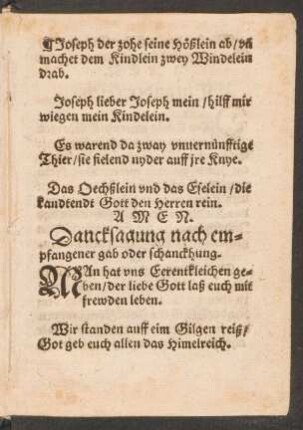 ¶ Joseph der zohe seine Hößlein ab/ vñ
machet dem Kindlein zwey Windelein
drab.
Joseph lieber Joseph mein/ hilff mir
wiegen mein Kindelein.
Es warend da zway vnuernünfftige
Thier/ sie fielend nyder auff jre Knye.
Das Oechßlein vnd das Eselein/ die
kandtendt Gott den Herren rein.
AMEN.
Dancksagung nach em-
pfangener gab oder schanckhung.
MAn hat vns Eerentkleichen ge-
ben/ der liebe Gott laß euch mit
frewden leben.
Wir standen auff eim Gilgen reiß/
Got geb euch allen das Himelreich.